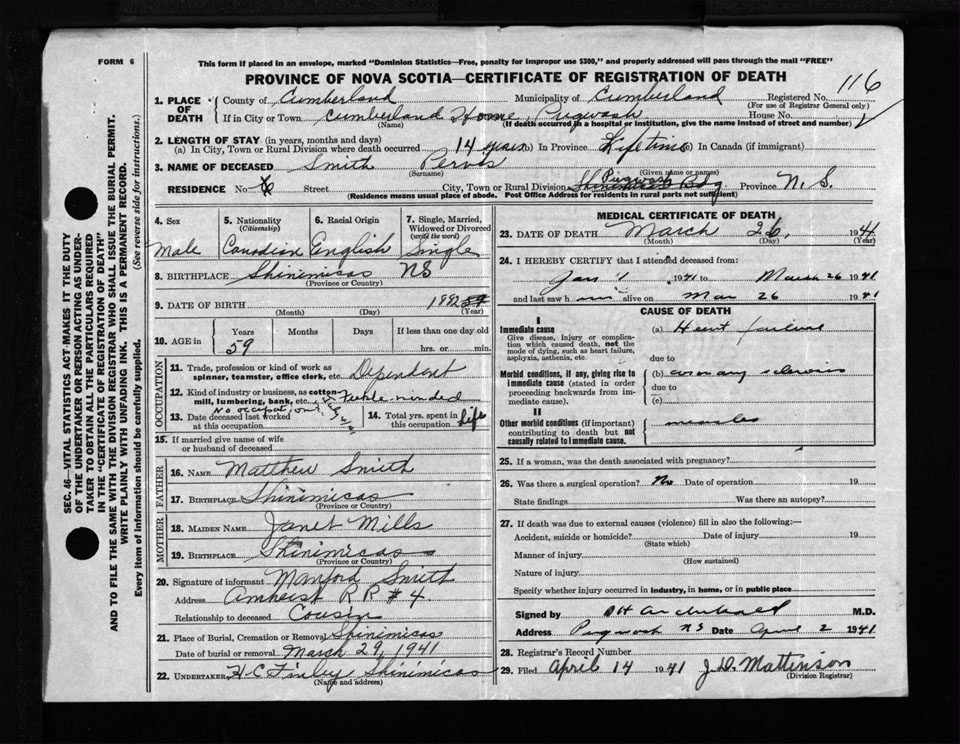 FORM 6
This form if placed in an envelope, marked "Dominion Statistics—Free, penalty for improper use $300," and properly addressed will pass through the mail "FREE"
PROVINCE OF NOVA SCOTIA—CERTIFICATE OF REGISTRATION OF DEATH
116
1. PLACE OF DEATH
County of Cumberland Municipality of Cumberland Registered No.
(For use of Registrar General only)
If in City or Town Cumberland Home, Pugwash House No.
(Name) (If death occurred in a hospital or institution, give the name instead of street and number)
2. LENGTH OF STAY (in years, months and days)
(a) In City, Town or Rural Division where death occurred 14 years (b) In Province Life time (c) In Canada (if immigrant)
3. NAME OF DECEASED Smith Pervis
(Surname) (Given name or names)
RESIDENCE No. Street City, Town or Rural Division Pugwash Shinimicas Bdg Province N. S.
(Residence means usual place of abode. Post Office Address for residents in rural parts not sufficient)
4. Sex Male
5. Nationality (Citizenship) Canadian
6. Racial Origin English
7. Single, Married, Widowed or Divorced (write the word) Single
8. BIRTHPLACE Shinimicas NS
(Province or Country)
9. DATE OF BIRTH 1882
(Month) (Day) (Year)
10. AGE in Years Months Days If less than one day old
59 hrs. or min.
OCCUPATION
11. Trade, profession or kind of work as spinner, teamster, office clerk, etc. Dependent
12. Kind of industry or business, as cotton-mill, lumbering, bank, etc. Feeble-minded
13. Date deceased last worked at this occupation No occupation
14. Total yrs. spent in this occupation Life
15. If married give name of wife or husband of deceased
FATHER
16. NAME Matthew Smith
17. BIRTHPLACE Shinimicas
(Province or Country)
MOTHER
18. MAIDEN NAME Janet Mills
19. BIRTHPLACE Shinimicas
(Province or Country)
20. Signature of informant Manford Smith
Address Amherst R R # 4
Relationship to deceased Cousin
21. Place of Burial, Cremation or Removal Shinimicas
Date of burial or removal March 29, 1941
22. UNDERTAKER H C Finley Shinimicas
(Name and address)
MEDICAL CERTIFICATE OF DEATH
23. DATE OF DEATH March 26, 1941
(Month) (Day) (Year)
24. I HEREBY CERTIFY that I attended deceased from:
Jan 1 1941 to March 26 1941
and last saw him alive on Mar 26 1941
CAUSE OF DEATH
I
Immediate cause
Give disease, injury or complication which caused death, not the mode of dying, such as heart failure, asphyxia, asthenia, etc.
(a) Heart failure
due to
Morbid conditions, if any, giving rise to immediate cause (stated in order proceeding backwards from immediate cause).
(b) coronary sclerosis
due to
(c)
II
Other morbid conditions (if important) contributing to death but not causally related to immediate cause.
measles
25. If a woman, was the death associated with pregnancy?
26. Was there a surgical operation? No Date of operation 19
State findings Was there an autopsy?
27. If death was due to external causes (violence) fill in also the following:—
Accident, suicide or homicide? Date of injury 19
(State which)
Manner of injury
(How sustained)
Nature of injury
Specify whether injury occurred in industry, in home, or in public place
Signed by D H Archibald M.D.
Address Pugwash NS Date April 2 1941
28. Registrar's Record Number
29. Filed April 14 1941 J. D. Mattinson
(Division Registrar)
SEC. 46—VITAL STATISTICS ACT MAKES IT THE DUTY
OF THE UNDERTAKER OR PERSON ACTING AS UNDER-
TAKER TO OBTAIN ALL THE PARTICULARS REQUIRED
IN THE "CERTIFICATE OF REGISTRATION OF DEATH"
AND TO FILE THE SAME WITH THE DIVISION REGISTRAR WHO SHALL ISSUE THE BURIAL PERMIT.
WRITE PLAINLY WITH UNFADING INK. THIS IS A PERMANENT RECORD.
Every item of information should be carefully supplied. (See reverse side for instructions.)